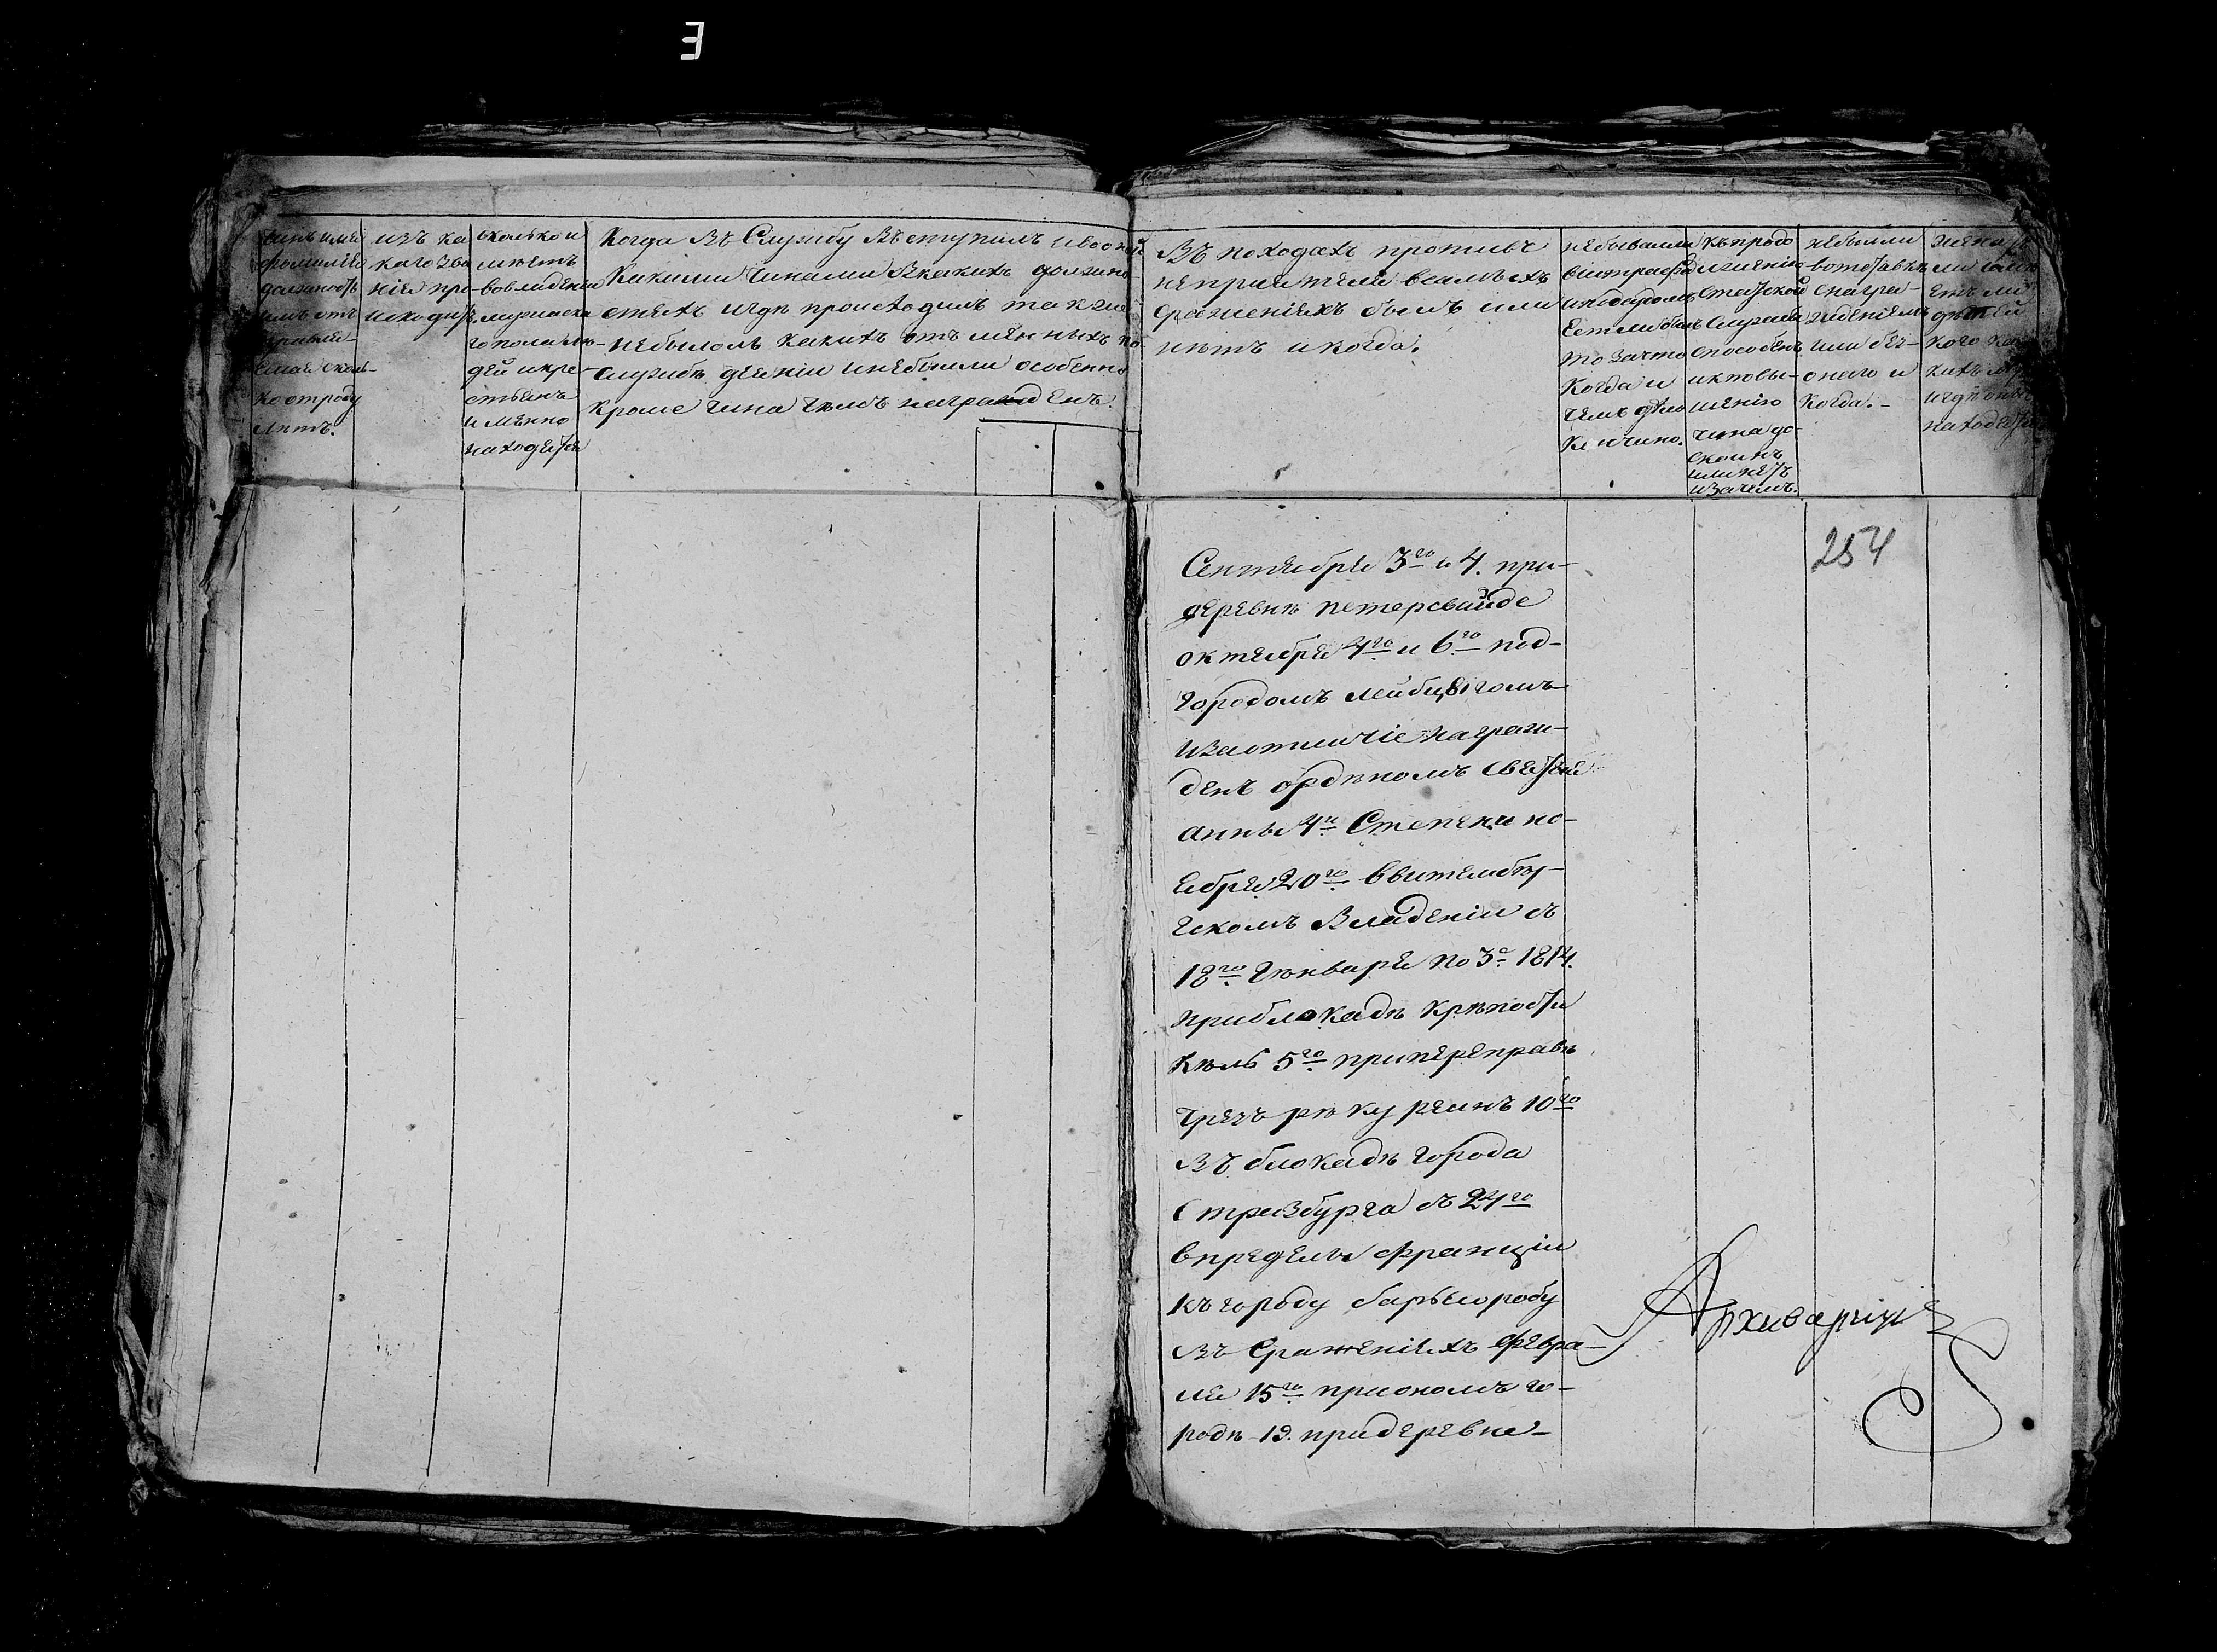 З
чинъ имя
фамилія
должность
имъ отъ
правля-
емая сколь-
ко отроду
лѣтъ.
изъ ка
каго зва
нія про-
исходитъ.
сколько и
мѣетъ
во владеніи
мужеска
го пола лю-
дей и кре-
стьянъ
и мѣнно
находятся
Когда въ Службу Въступилъ и во оной
Какими Чинами Вкакихъ должно-
стяхъ игдѣ происходилъ также
небылоль какихъ отъ мѣнныхъ по
службѣ деяніи инебылли особенно
кроме чина чѣмъ награжденъ.
Въ походахъ противъ
непріятеля всамыхъ
сраженіяхъ былъ или
нѣтъ и когда.
небывалли
вштрафѣ
Естли былъ
то зачто
Когда и
чемъ дѣло
кончино.
къ продо
лженію
Статской
Службы
способенъ
и кповы-
шенію
чина до-
стоинъ
или нетъ
изачемъ.
небылли
вотставкѣ
снагра-
жденіемъ
или безъ
онаго и
когда.-
женатъ
ли имѣ
етъ ли
дѣтей
кого
игдѣ они
находятся
254
Сентября 3го и 4. при-
деревнѣ петерсвайде
октября 4го и 6го под-
городомъ лейбцыгомъ
изаотличіе награж-
денъ ордѣномъ святыя
анны 4й Степени но-
ября 20го ввитембѣр-
гскомъ Владеніи съ
18го Генваря по 3е 1814.
приблокадѣ крѣпости
Кѣль 5го припереправѣ
чрезъ рѣку реинъ 10го
въ блокадѣ города
Стразбурга съ 24го
впределы Франціи
къ городу барьсюробу
въ Сраженіяхъ Февра-
ля 15го приономъ го-
родѣ 19. придеревне-
Архиваріусъ